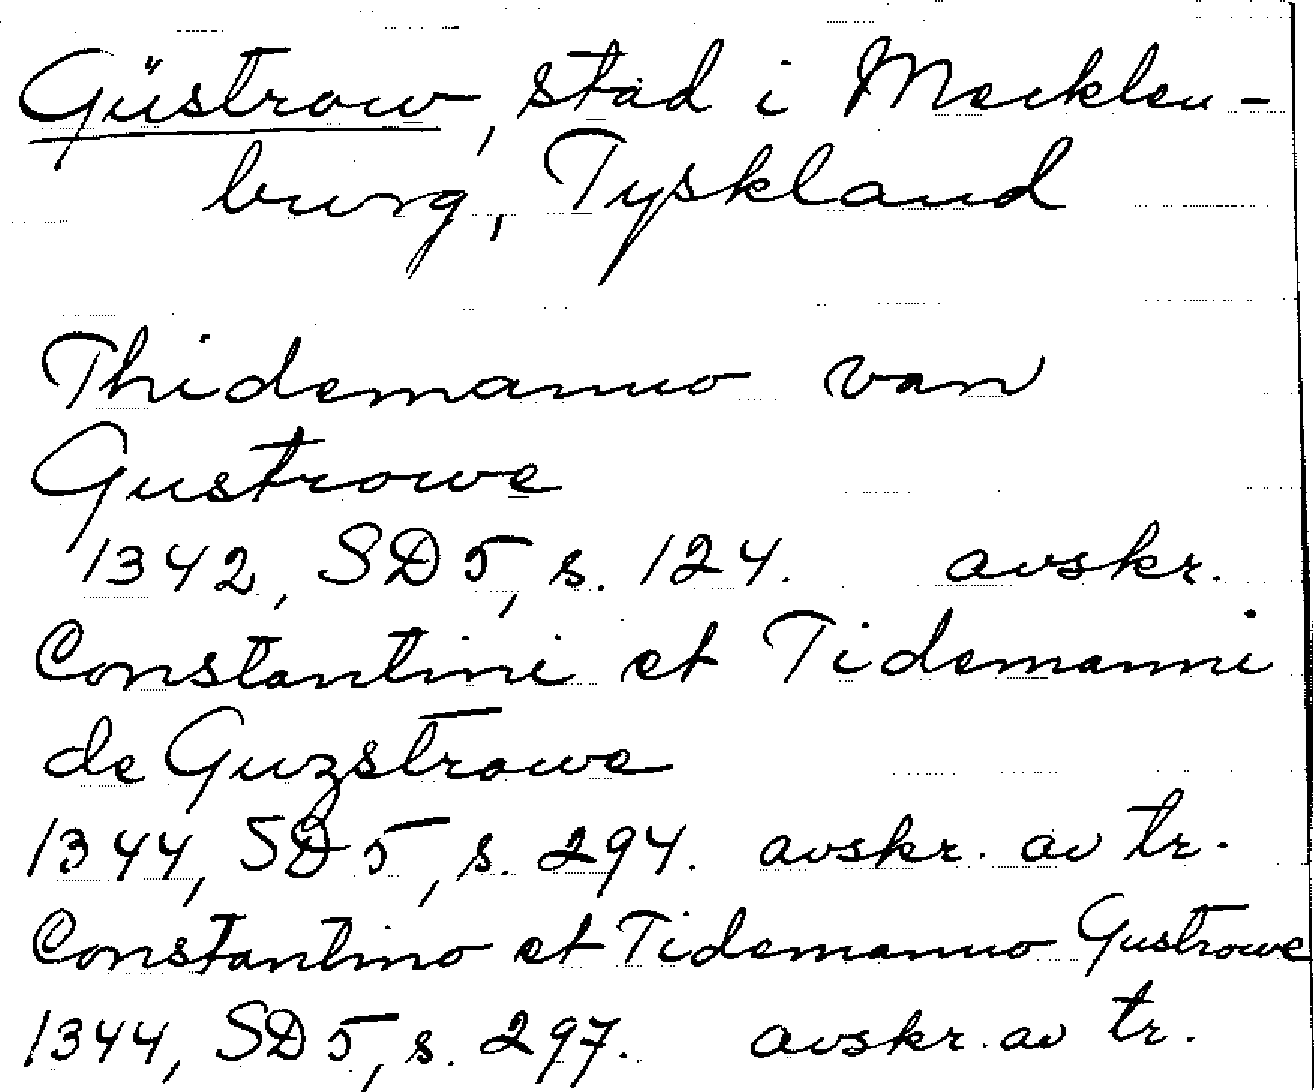 Güstrow, stad i Mecklen-
burg, Tyskland
Thidemanno van
Gustrowe
1342, SD 5, s. 124. avskr.
Constantini et Tidemanni
de Guzstrowe
1344, SD 5, s. 294. avskr. av tr.
Constantino et Tidemanno Gustrowe
1344, SD 5, s. 297. avskr. av tr.